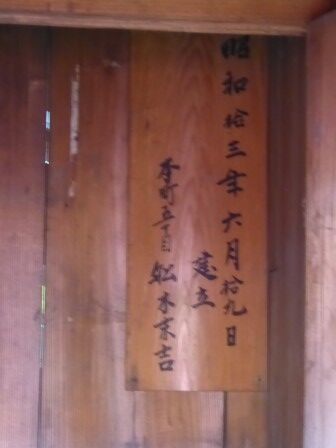 昭和拾三年六月拾九日
建立
本町五丁目 松本末吉